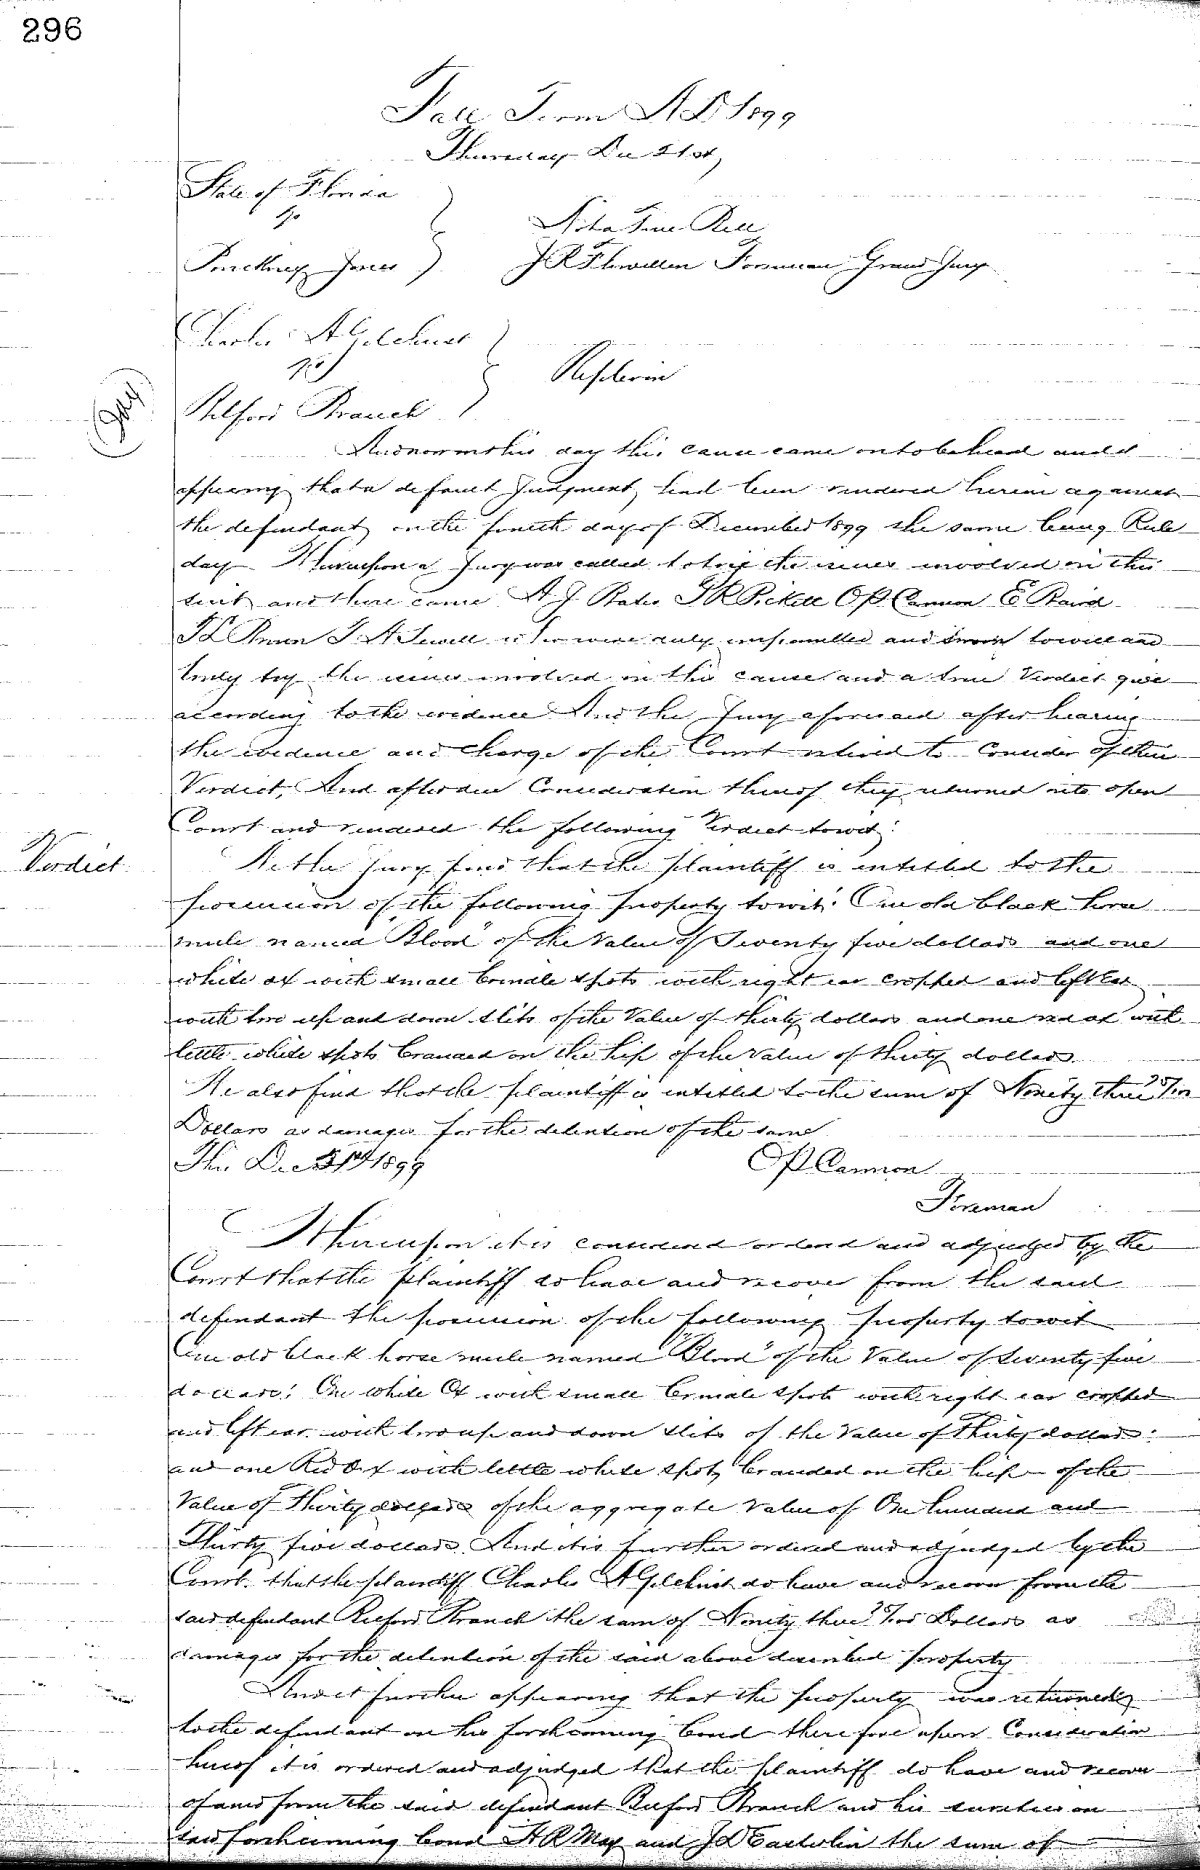 296
Fall Term A D 1899
Thursday Dec 21st,
State of Florida
vs
Jones
Not a True Bill
J R Flewellen Foreman Grand Jury
Charles A Gilchrist
vs
Replevin
Branch
And now on this day this cause came on to be heard and it
appearing that a default Judgment, had been rendered herein against
the defendant on the fourth day of December 1899 the same being Rule
day Whereupon a Jury was called to try the issues involved in this
suit and there came A. J. Bates J R Pickett O P Cannon E Baird
J. A Sewell who were duly impanelled and sworn to well and
truly try the issues involved in this cause and a true Verdict give
according to the evidence And the Jury aforesaid after hearing
the evidence and charge of the Court retired to Consider of their
Verdict, And after due Consideration thereof they returned into open
Court and rendered the following Verdict towit:
Verdict
We the Jury find that the plaintiff is entitled to the
possession of the following property towit: One old black horse
mule named "Blood" of the Value of Seventy five dollars and one
white ox with small brindle spots with right ear cropped and left ear
with two up and down slits of the Value of thirty dollars and one red ox with
little white spots branded on the hip of the Value of thirty dollars.
We also find that the plaintiff is entitled to the sum of Ninety three 75/100
Dollars as damages for the detention of the same
This Dec 21st 1899
O P Cannon
Foreman
Whereupon it is considered ordered and adjudged by the
Court that the plaintiff do have and recover from the said
defendant the possession of the following property towit
One old black horse mule named "Blood" of the Value of Seventy five
dollars: One white Ox with small brindle spots with right ear cropped
and left ear with two up and down slits of the Value of Thirty dollars:
and one Red Ox with little white spots branded on the hip of the
Value of Thirty dollars of the aggregate Value of One hundred and
Thirty five dollars. And it is further ordered and adjudged by the
Court. that the plaintiff Charles A Gilchrist do have and recover from the
said defendant Branch the sum of Ninety three 75/100 Dollars as
damages for the detention of the said above described property
And it further appearing that the property was returned
to the defendant on his forthcoming bond therefore upon Consideration
hereof it is ordered and adjudged that the plaintiff do have and recover
of and from the said defendant Branch and his sureties on
said forthcoming bond A R May and J D the sum of